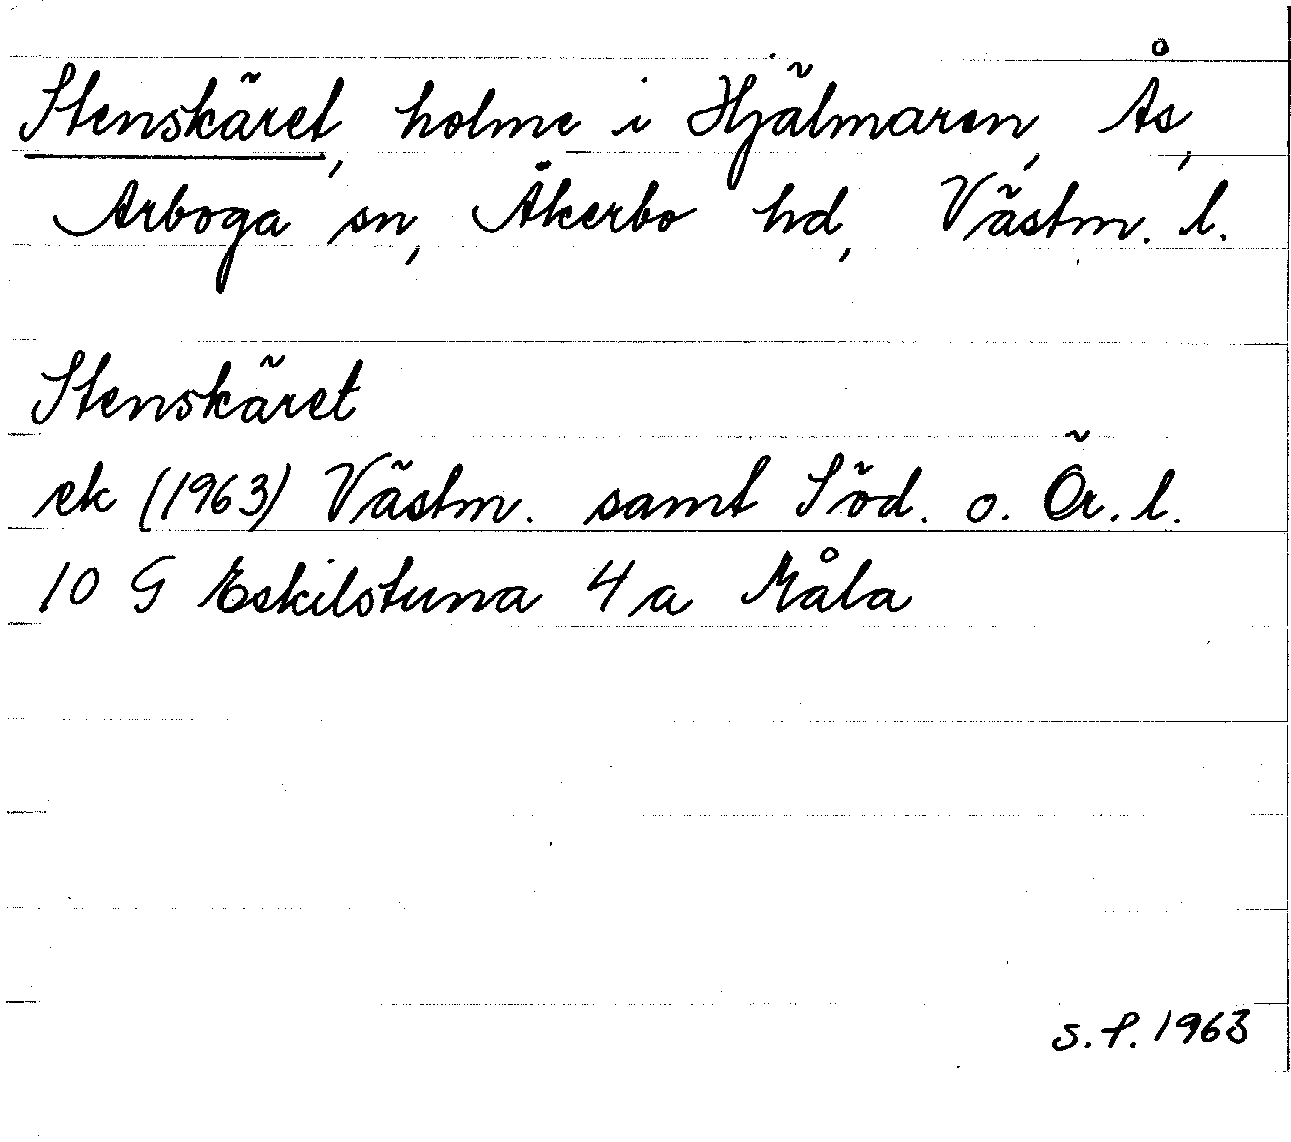 Stenskäret, holme i Hjälmaren, Ås,
Arboga sn, Åkerbo hd, Västm. l.
Stenskäret
ek (1963) Västm. samt Söd. o. Ör. l.
10 G Eskilstuna 4 a Måla
S.P. 1963